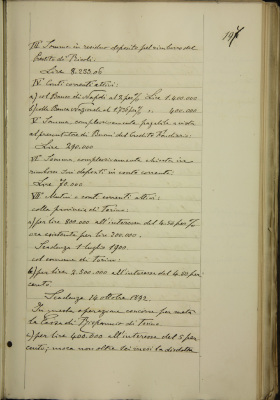 197
III Somma in residuo deposito pel rimborso del
Credito di Rivoli.
Lire 8.233.06
IV Conti correnti attivi:
a) col Banco di Napoli al 2 per % Lire 1.400.000
b) colla Banca Nazionale al 1.75 per % " 400.000
V Somma complessivamente pagabile a vista
al presentatore di Buoni del Credito Fondiario
Lire 290.000
VI Somma complessivamente chiesta in
rimborso sui depositi in conto corrente.
Lire 70.000
VII Mutui e conti correnti attivi:
colla provincia di Torino:
a) per lire 800.000 all'interesse del 4.50 per %
ora esistente per lire 200.000.
Scadenza 1 luglio 1900.
col comune di Torino:
b) per lire 3.500.000 all'interesse del 4.60 per
cento
Scadenza 14 ottobre 1892.
In questa operazione concorse per metà
la Cassa di Risparmio di Torino.
c) per lire 400.000 all'interesse del 5 per
cento, mora non oltre sei mesi la disdetta